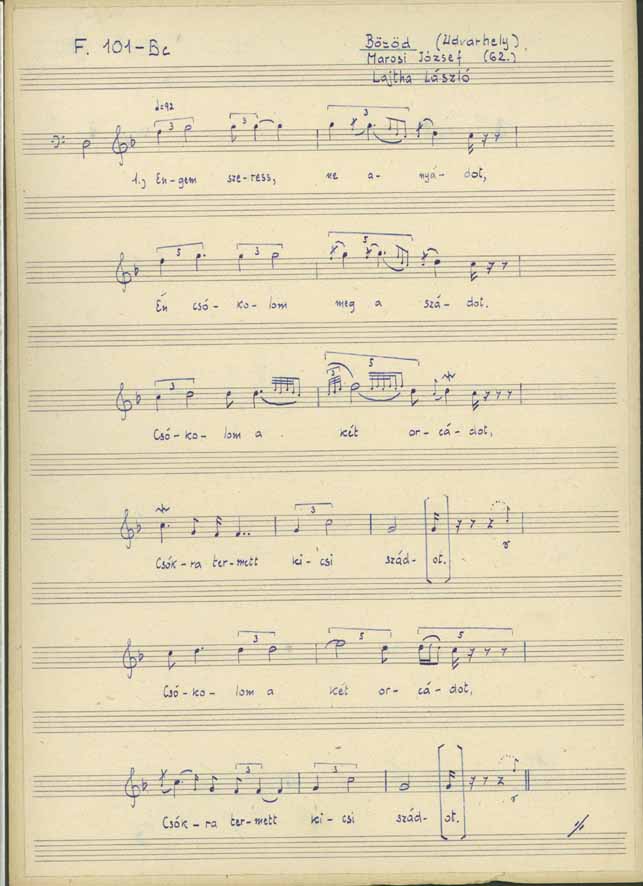 F. 101-Bc
Bözöd (Udvarhely)
Marosi József (62.)
Lajtha László
♩=92
3 3 3
1.) En-gem sze-ress, ne a- nyá- dot,
5 3 5
Én csó- ko- lom meg a szá- dot.
3 3 5
Csó-ko- lom a két or- cá- dot,
3
Csók-ra ter-mett ki- csi szád- ot.
3 5 5
Csó- ko- lom a két or- cá- dot,
3 3
Csók-ra ter-mett ki- csi szád- ot.